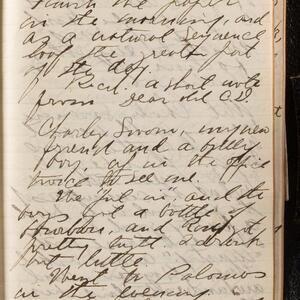 the paper
in the morning, and
as a natural sequence
loaf the greater part
of the day.
Rec'd a short note
from Dear old C.D.
Charley Swom, my new
friend and a
boy, up in the office
twice to see me.
We "fell in" and the
boys got a bottle of
bourbon, and Tom got
pretty tight. I drank
but little.
Went to Palomos
in the evening